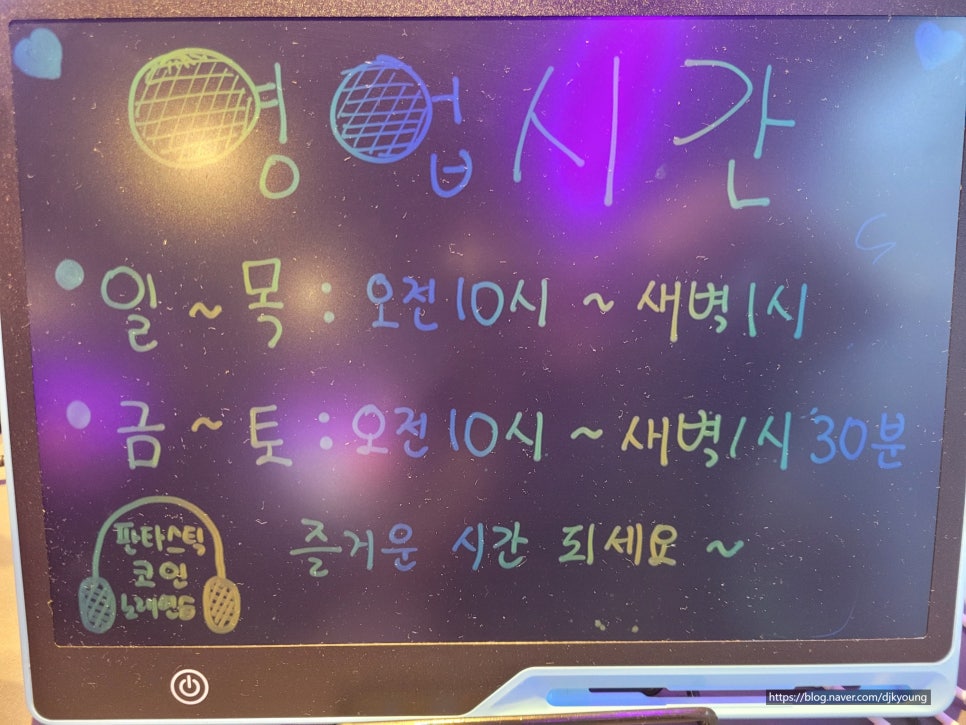 영업시간
일 ~ 목 : 오전 10시 ~ 새벽 1시
금 ~ 토 : 오전 10시 ~ 새벽 1시 30분
판타스틱
코인
즐거운 시간 되세요 ~
https://blog.naver.com/djkyoung